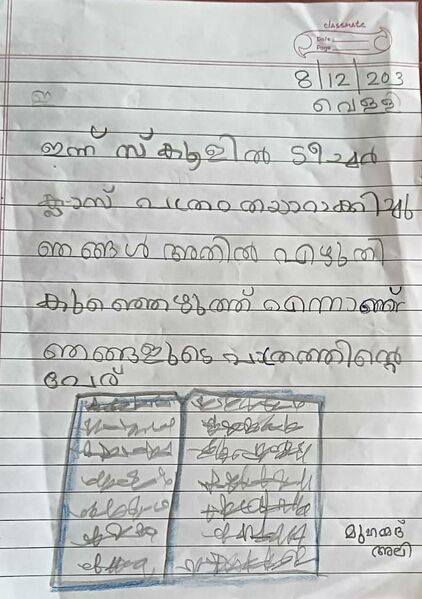 classmate
Date
Page
8/12/203
വെള്ളി
ഇന്ന് സ്കൂളിൽ ടീച്ചർ
ക്ലാസ് പത്രം തയ്യാറാക്കിച്ചു
ഞങ്ങൾ അതിൽ എഴുതി
കുഞ്ഞെഴുത്ത് എന്നാണ്
ഞങ്ങളുടെ പത്രത്തിൻ്റെ
പേര്
മുഹമ്മദ്
അലി